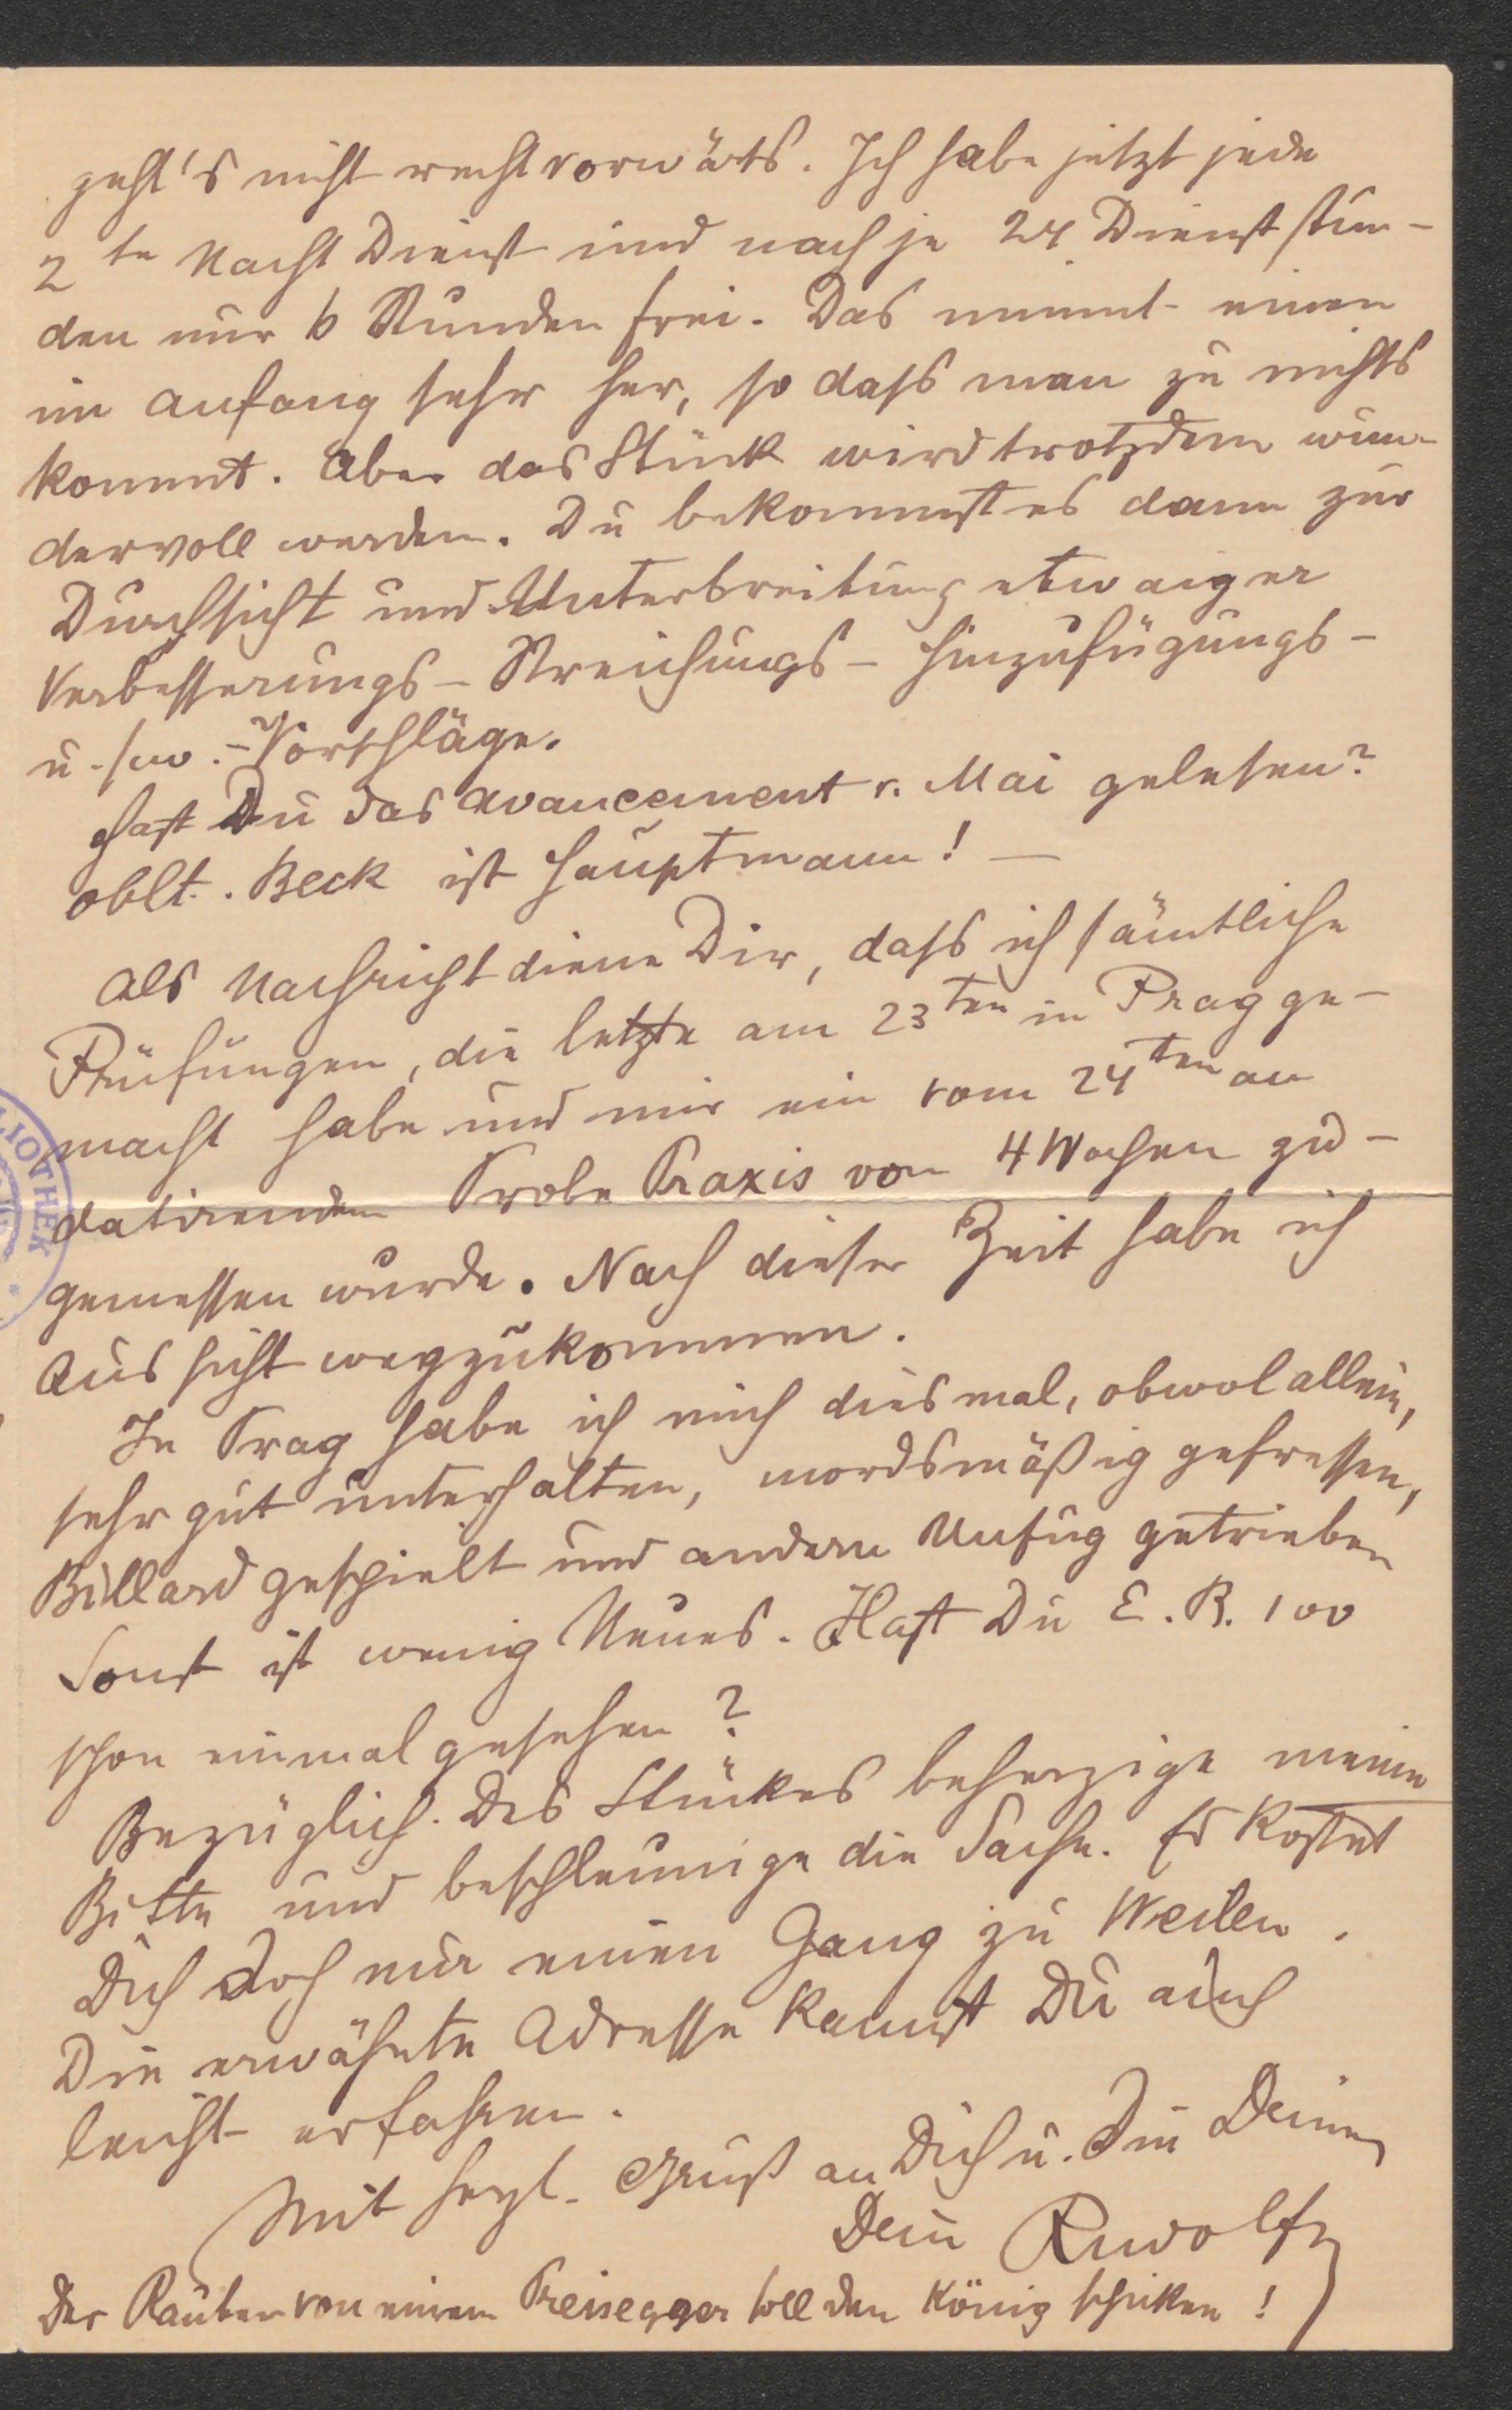 geht's nicht recht vorwärts. Ich habe jetzt jede
2te Nacht Dienst und nach je 24 Dienststun-
den nur 6 Stunden frei. Das nimmt einen
im Anfang sehr her, so dass man zu nichts
kommt. Aber das Stück wird trotzdem wun-
dervoll werden. Du bekommst es dann zur
Durchsicht und Unterbreitung etwaiger
Verbesserungs- Streichungs- Hinzufügungs-
u.s.w.-Vorschläge.
Hast Du das Avancement v. Mai gelesen?
Oblt. Beck ist Hauptmann! —
Als Nachricht diene Dir, dass ich sämtliche
Prüfungen, die letzte am 23ten in Prag ge-
macht habe und mir ein vom 24ten an
datirenden Probe Praxis von 4 Wochen zu-
gemessen wurde. Nach dieser Zeit habe ich
Aussicht wegzukommen.
In Prag habe ich mich diesmal, obwol allein,
sehr gut unterhalten, mordsmäßig gefressen,
Billard gespielt und andern Unfug getrieben
Sonst ist wenig Neues. Hast Du E. R. 100
schon einmal gesehen?
Bezüglich des Stückes beherzige meine
Bitte und beschleunige die Sache. Es kostet
Dich doch nur einen Gang zu Weilen.
Die erwähnte Adresse kannst Du auch
leicht erfahren.
Mit hrzl. Gruß an Dich u. die Deinen
Dein Rudolf
Der Räuber von einem Preisegger soll den König schicken!
LIOTHEK